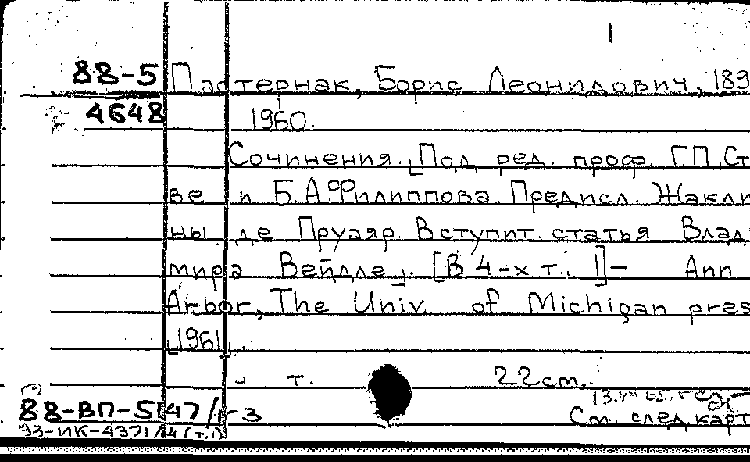 88-5 Пастернак, Борис Леонидович, 189
4648 1960.
Сочинения. [Под ред. проф. Г.П. Ст
ве и Б.А. Филиппова. Предисл. Жакли
ны де Пруаяр. Вступит. статья Влад
мира Вейдле]. [В 4-х т. 1]— Ann
Arbor, The Univ. of Michigan pres
[1961].
т. 22 cm.
88-ВП-5147/ -3
93-ИК-4371/14 (т.1) См. след. карт